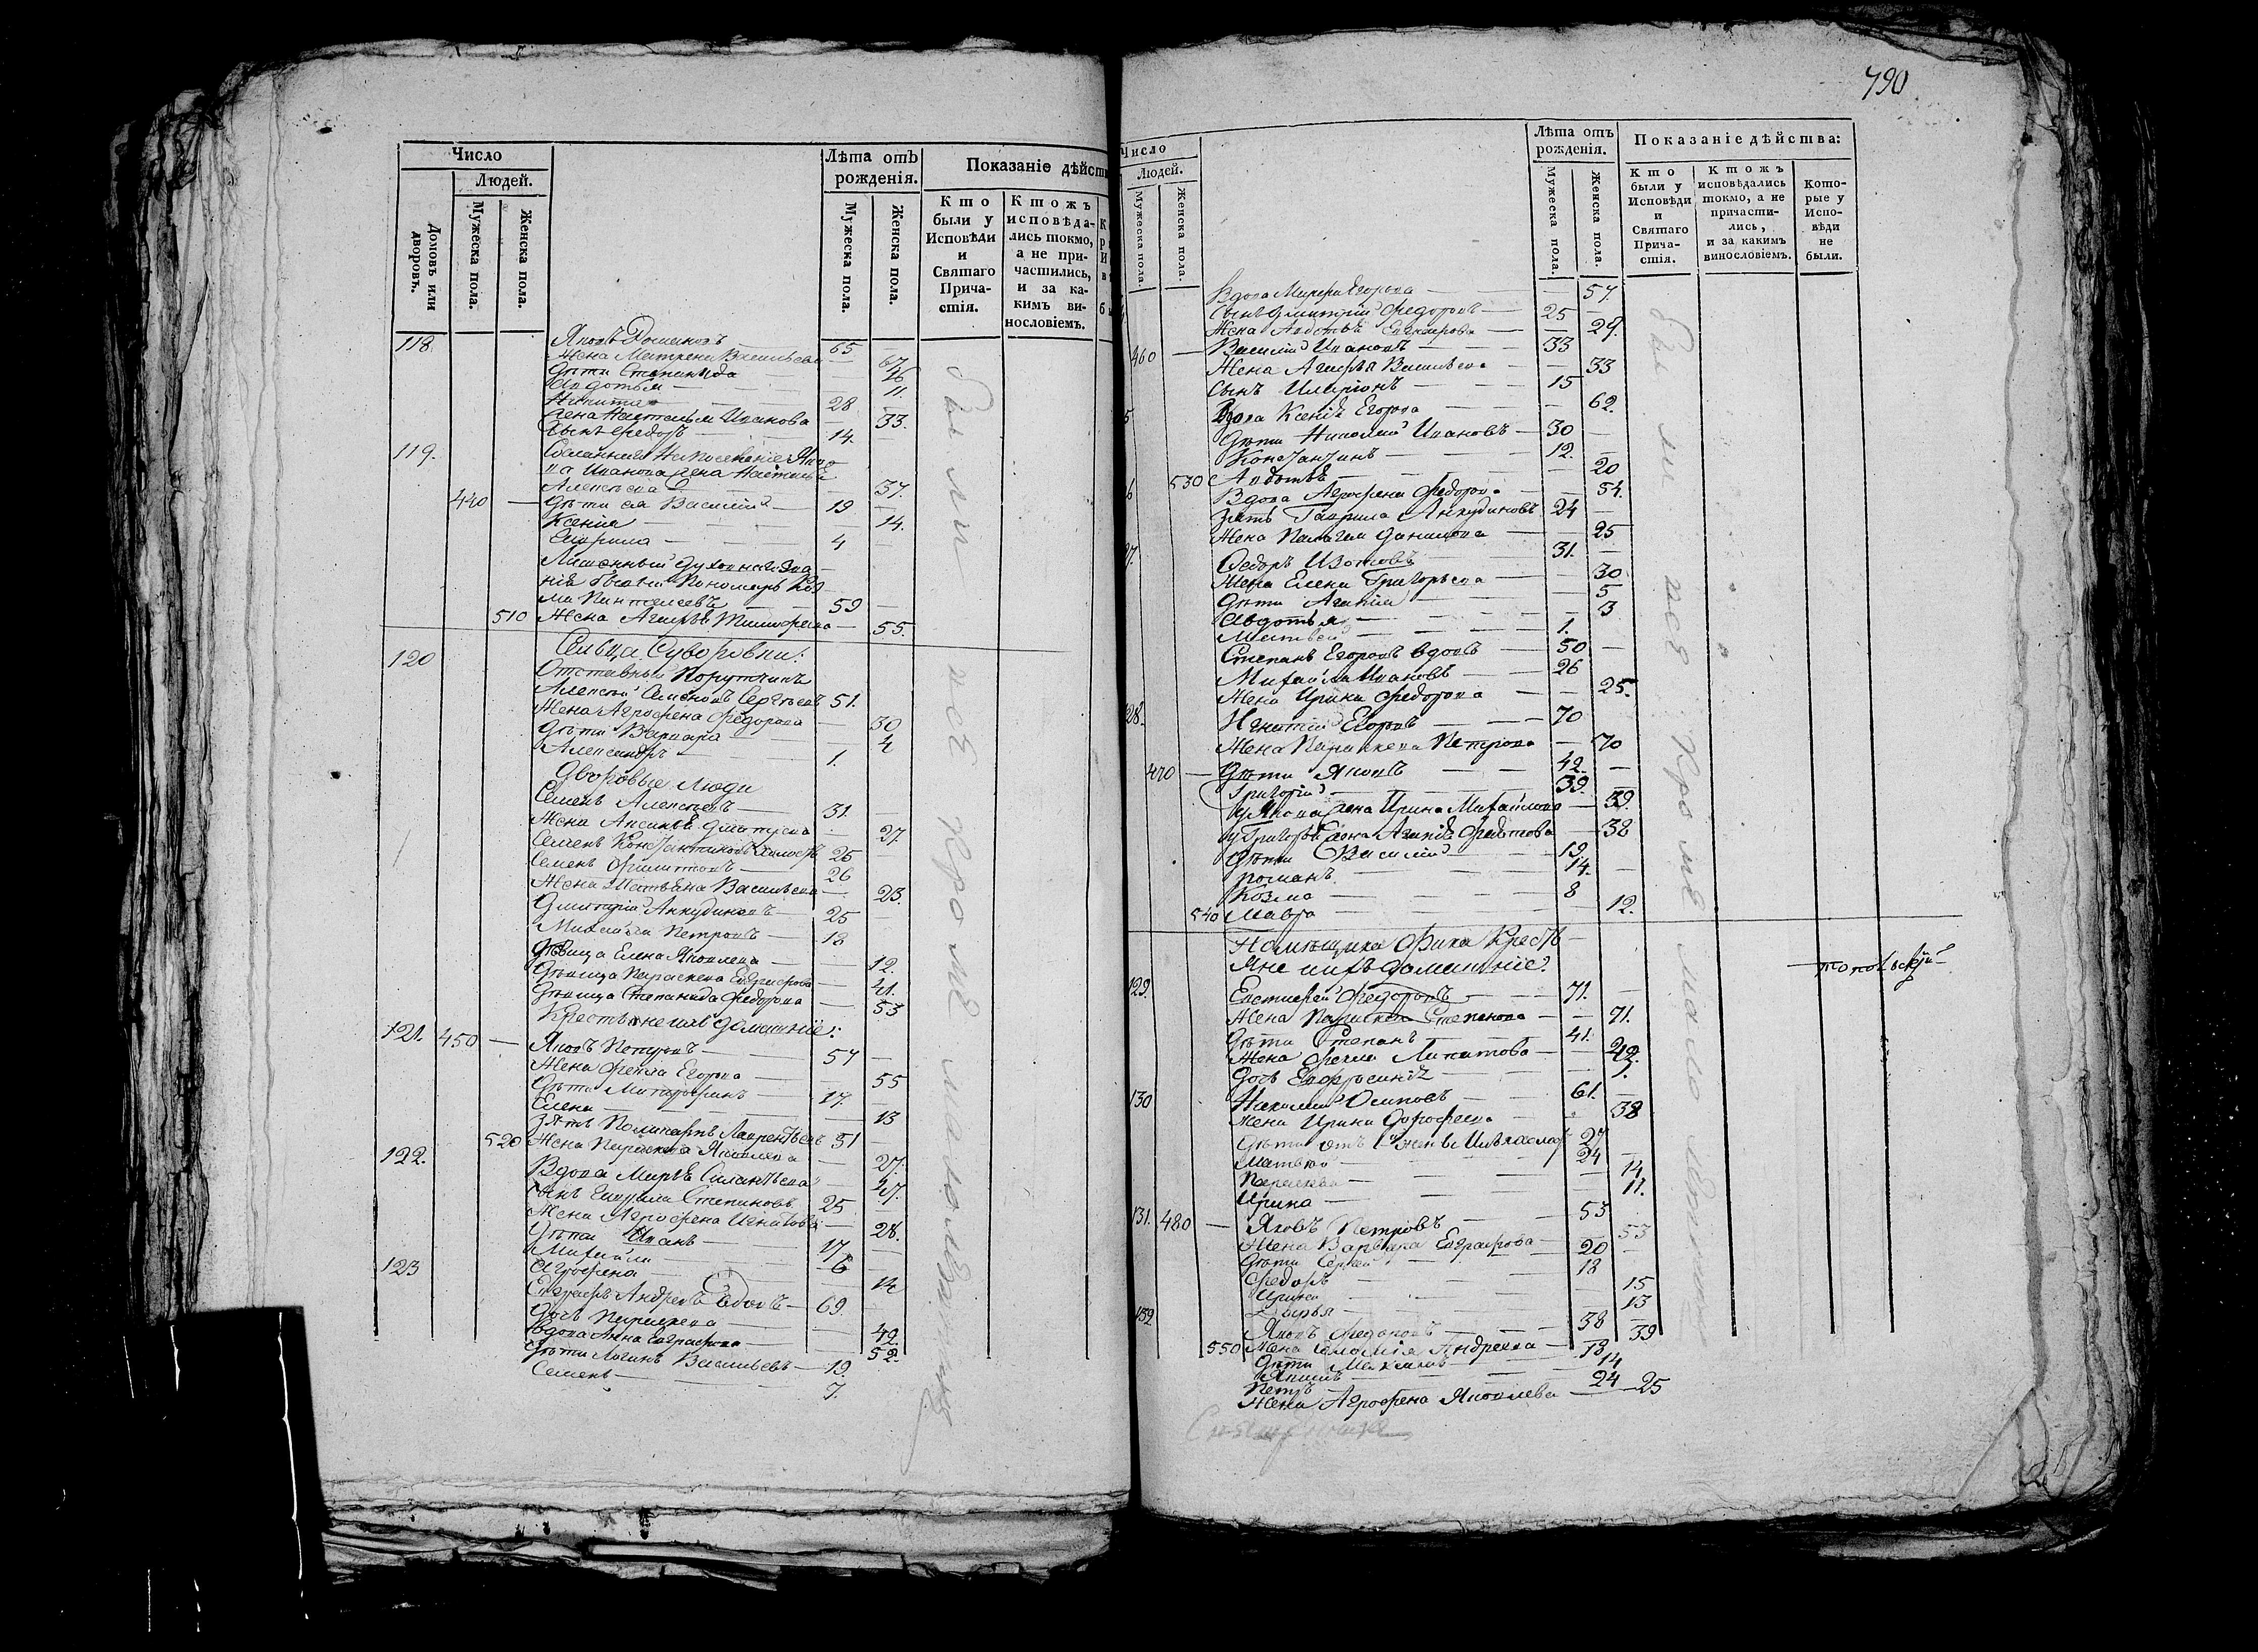 790
Число
Людей.
Домовъ или дворовъ.
Мужеска пола.
Женска пола.
Лѣта отъ рожденія.
Мужеска пола.
Женска пола.
Показаніе дѣйств
Кто были у Исповѣди и Святаго Причастія.
Ктожъ исповѣдались токмо, а не причастились, и за какимъ винословіемъ.
118.
65 —
Жена Матрена Васильева — 67
Дѣти Степанида 16
Авдотья — 11.
Никита — 28
Жена Наталья Иванова — 33.
Сынъ Федоръ — 14.
119.
Алексѣева — 37.
440 — Дѣти ея Василий — 19 —
Ксенія — 14.
Гаврила — 4
59 —
510 Жена Агафья Тимофеева — 55.
120 Сельца Суворовки:
Отставный Порутчикъ
Алексѣй Семеновъ Сергѣевъ 51.
Жена Агрофена Федорова — 30
Дѣти Варвара — 4
Александръ — 1.
Дворовые люди
Семенъ Алексѣевъ — 31.
Жена Аксинья Дмитрева — 27.
Семенъ Константиновъ холостъ 25 —
Семенъ Филиповъ — 26
Жена Татьяна Васильева — 23.
Дмитрій Анкудиновъ — 25
Михайла Петровъ — 18
Дѣвица Елена Яковлева — 12.
Дѣвица Параскева Евграфова — 41.
Дѣвица Степанида Федорова — 53
Крестьяне ихъ домашніе:
121. 450 — Яковъ Петровъ — 57 —
Жена Фекла Егорова — 55
Дѣти Митрофанъ — 17.
Елена — 13
Зять Поликарпъ Лаврентьевъ 31 —
520 Жена Параскева Яковлева — 27.
122. Вдова Марья Силантьева — 47.
Сынъ Гаврила Степановъ 25 —
Жена Агрофена Игнатова — 28.
Дѣти Иванъ — 17
Михайла — 6 —
Агрофена — 14
123 Евграфъ Андреевъ вдовъ — 69.
Дочь Параскева — 42.
Вдова Анна Евграфова — 52.
Дѣти Логинъ Васильевъ — 19.
Семенъ — 7.
Были всѣ кроме
Число
Людей.
Мужеска пола.
Женска пола.
Лѣта отъ рожденія.
Мужеска пола.
Женска пола.
Показаніе дѣйства:
Кто были у Исповѣди и Святаго Причастія.
Ктожъ исповѣдались токмо, а не причастились, и за какимъ винословіемъ.
Которые у Исповѣди не были.
Вдова Марфа Егорова — 57.
Сынъ Дмитрій Федоровъ — 25 —
Жена Авдотья Евграфова — 29.
460 — Василій Ивановъ — 33
Жена Агафья Васильева — 33
Сынъ Иларіонъ — 15
Вдова Ксенія Егорова — 62.
Дѣти Николай Ивановъ — 30 —
Константинъ — 12. —
530 Авдотья — 20
Вдова Агрофена Федорова — 54.
Зять Гаврила Анкудиновъ 24 —
Жена Палагея Данилова — 25
Федоръ Изотовъ — 31. —
Жена Елена Григорьева — 30
Дѣти Агафія — 5
Авдотья — 3
Матвѣй — 1.
Степанъ Егоровъ вдовъ — 50 —
Михайла Ивановъ — 26
Жена Ирина Федорова — 25.
128. Игнатій Егоровъ — 70
Жена Параскева Петрова — 70
470 — Дѣти Яковъ — 42. —
Григорій — 39.
У Якова жена Ирина Михайлова — 39.
У Григорья жена Агафія Федотова — 38
Дѣти Василій — 19
Романъ — 14. —
Козма — 8
540 Мавра — 12.
Помѣщика Фика Кресть-
яне ихъ домашніе:
129. Евстифей Федоровъ — 71. —
Жена Параскева Степанова — 71.
Дѣти Степанъ — 41. —
Жена Фекла Липатова — 42.
Дочь Евфросинія — 7.
130 Николай Осиповъ — 61. —
Жена Ирина Дорофеева — 38
27
Матвѣй — 24 —
Параскева — 14
Ирина — 11.
131. 480 — Яковъ Петровъ — 53
Жена Варвара Евграфова — 53
Дѣти Сергей — 20 —
Федоръ — 18
Ирина — 15
Дарья — 13
132. Яковъ Федоровъ — 38 —
550 Жена Соломія Андреева — 39
Дѣти Максимъ — 18
14
Петръ — 24
Жена Агрофена Яковлева — 25
Были всѣ кроме